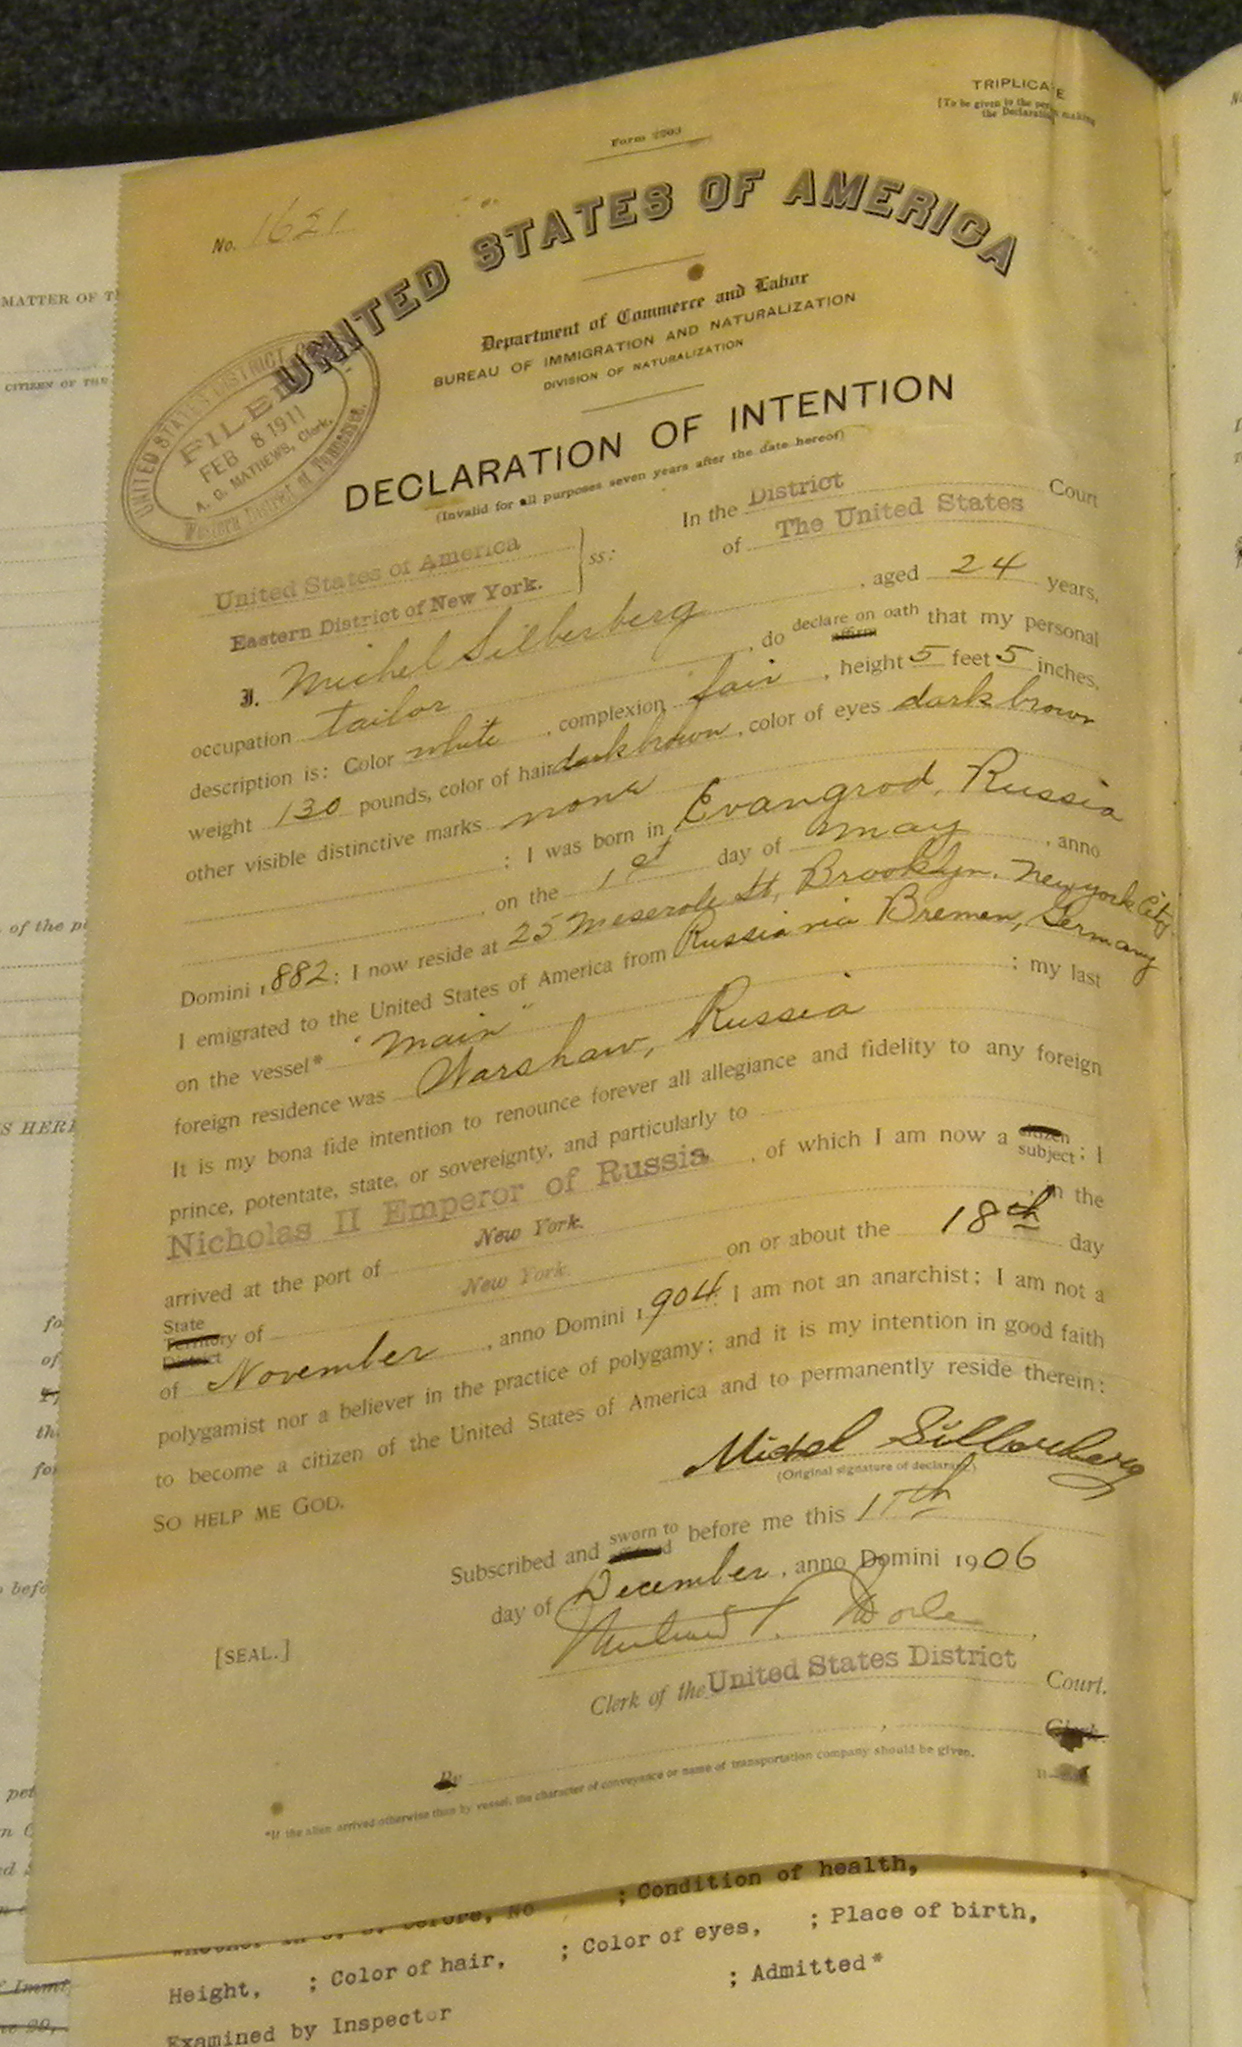 TRIPLICATE
[To be given to the person making
the Declaration]
Form 2203
No. 1621
UNITED STATES OF AMERICA
Department of Commerce and Labor
BUREAU OF IMMIGRATION AND NATURALIZATION
DIVISION OF NATURALIZATION
UNITED STATES DISTRICT
FILED
FEB 8 1911
A. G. MATHEWS, Clerk.
Western District of Tennessee.
DECLARATION OF INTENTION
(Invalid for all purposes seven years after the date hereof)
In the District Court
of The United States
United States of America
Eastern District of New York. ss:
I, Michel Silberberg, aged 24 years,
occupation tailor, do declare on oath affirm that my personal
description is: Color white, complexion fair, height 5 feet 5 inches,
weight 130 pounds, color of hair dark brown, color of eyes dark brown
other visible distinctive marks none
: I was born in Evangrod, Russia
, on the 1st day of May, anno
Domini 1882: I now reside at 25 Meserole St, Brooklyn, New York City
I emigrated to the United States of America from Russia via Bremen, Germany
on the vessel* "Main" ; my last
foreign residence was Warshaw, Russia
It is my bona fide intention to renounce forever all allegiance and fidelity to any foreign
prince, potentate, state, or sovereignty, and particularly to
Nicholas II Emperor of Russia, of which I am now a citizen subject; I
arrived at the port of New York. , in the
State Territory District of New York. on or about the 18th day
of November, anno Domini 1904: I am not an anarchist; I am not a
polygamist nor a believer in the practice of polygamy; and it is my intention in good faith
to become a citizen of the United States of America and to permanently reside therein:
SO HELP ME GOD.
Michel Silberberg
(Original signature of declarant.)
Subscribed and sworn to before me this 17th
day of December, anno Domini 1906
[SEAL.]
Clerk of the United States District Court.
By , Clerk.
*If the alien arrived otherwise than by vessel, the character of conveyance or name of transportation company should be given.
MATTER OF
CITIZEN OF THE
of the
before, No ; Condition of health, ,
Height, ; Color of hair, ; Color of eyes, ; Place of birth,
Examined by Inspector ; Admitted*